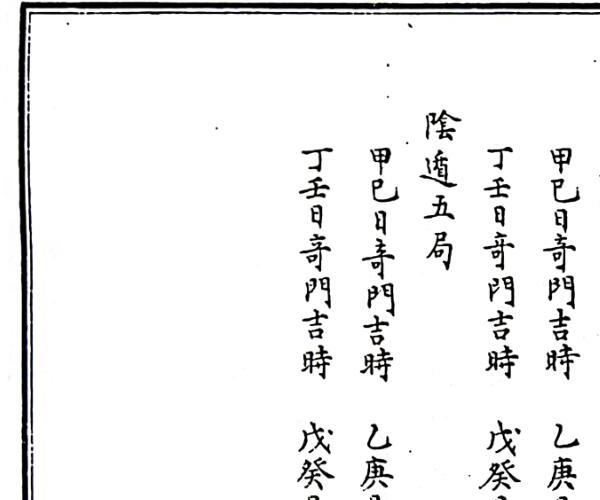 甲巳日竒門吉時 乙庚
丁壬日竒門吉時 戊癸
陰遁五局
甲巳日竒門吉時 乙庚
丁壬日竒門吉時 戊癸